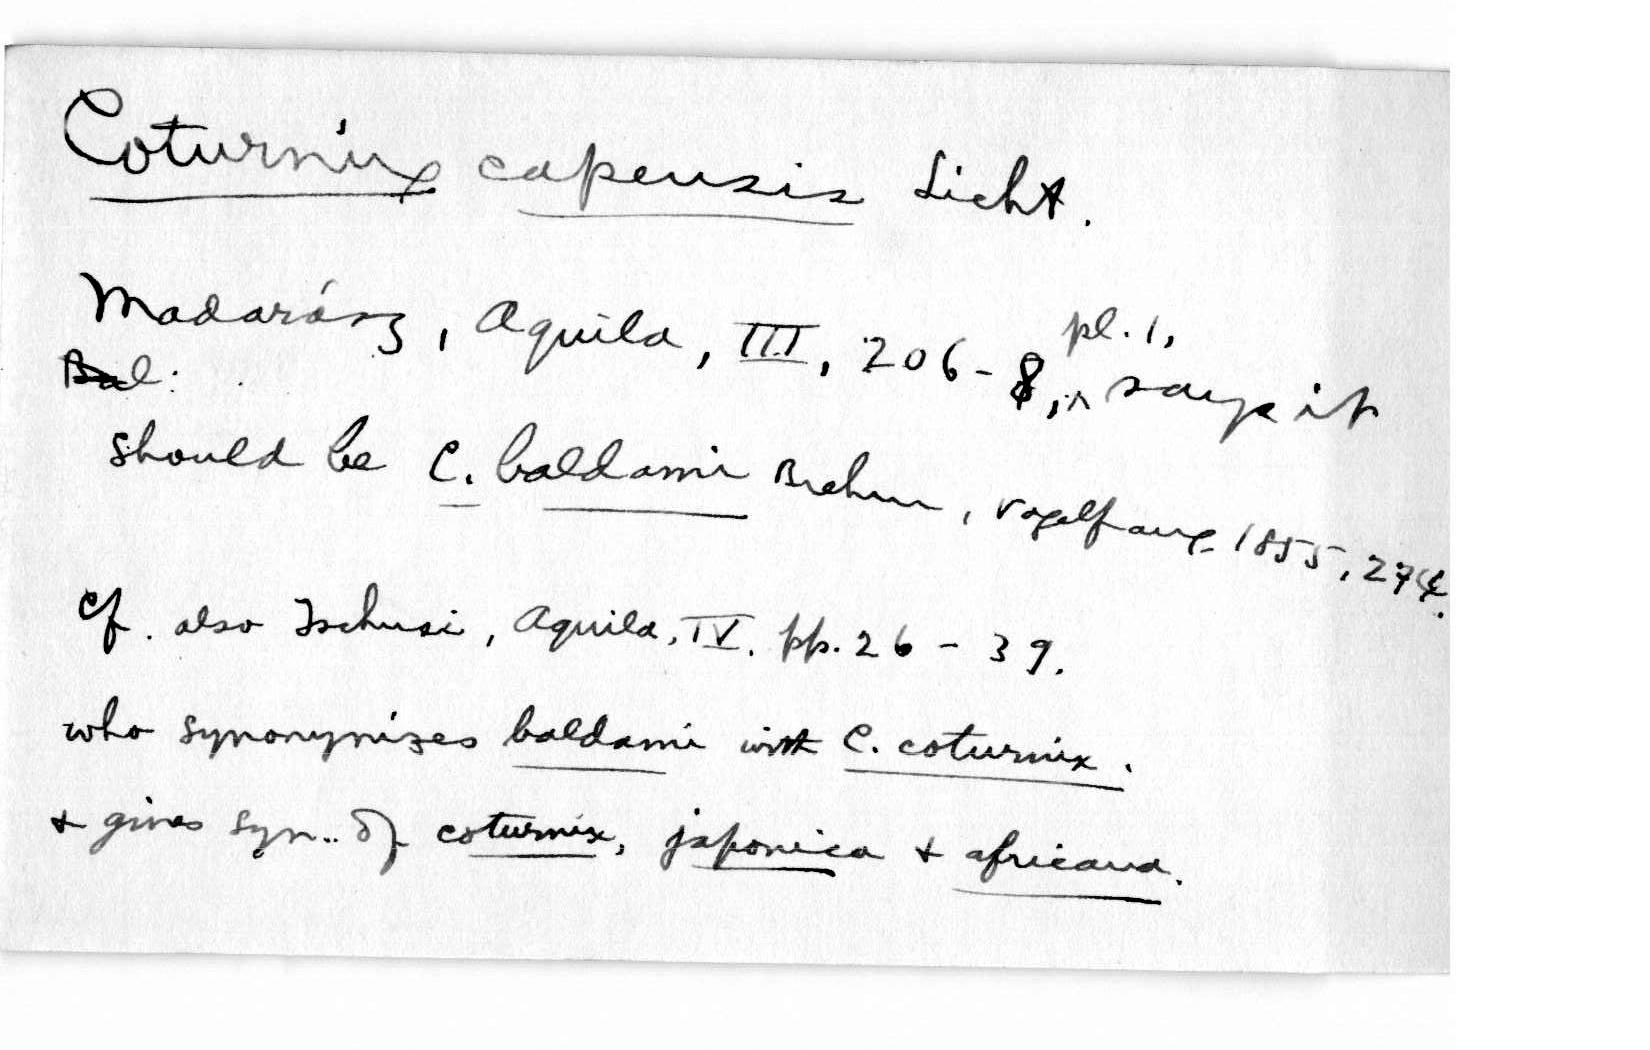 Coturnix capensis Licht.
Madarász, Aquila, III, 206-8, pl. 1, says it
should be C. baldami Brehm, Vogelfang 1855, 274.
Cf. also Tschusi, Aquila, IV. pp. 26-39.
who synonymizes baldami with C. coturnix.
& gives syn. of coturnix, japonica & africana.